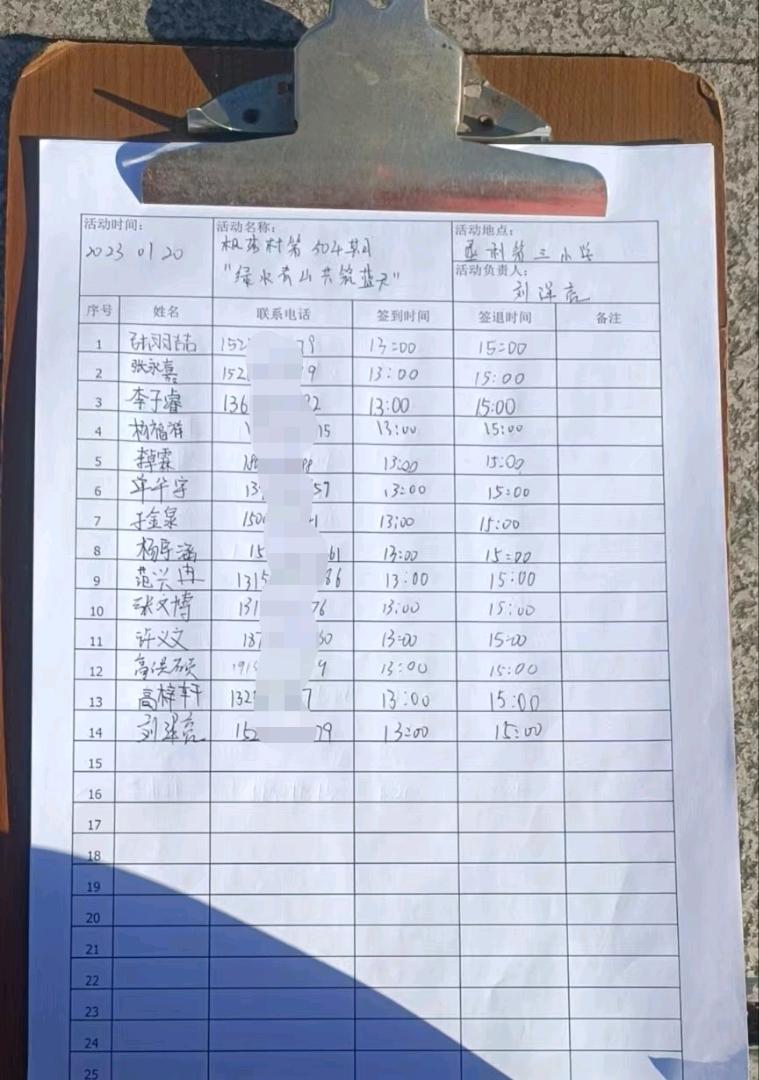 活动时间: 活动名称: 活动地点:
2023 01 20 第504期 第三小学
"绿水青山共筑蓝天" 活动负责人:
刘泽亮
序号 姓名 联系电话 签到时间 签退时间 备注
1 152 79 13:00 15:00
2 张永嘉 152 9 13:00 15:00
3 李子睿 136 92 13:00 15:00
4 杨福祥 1 15 13:00 15:00
5 13:00 15:00
6 13 57 13:00 15:00
7 150 1 13:00 15:00
8 15 61 13:00 15:00
9 范兴冉 1315 86 13:00 15:00
10 张文博 131 76 13:00 15:00
11 许义文 187 50 13:00 15:00
12 9 13:00 15:00
13 高梓轩 132 7 13:00 15:00
14 刘泽亮 152 79 13:00 15:00
15
16
17
18
19
20
21
22
23
24
25